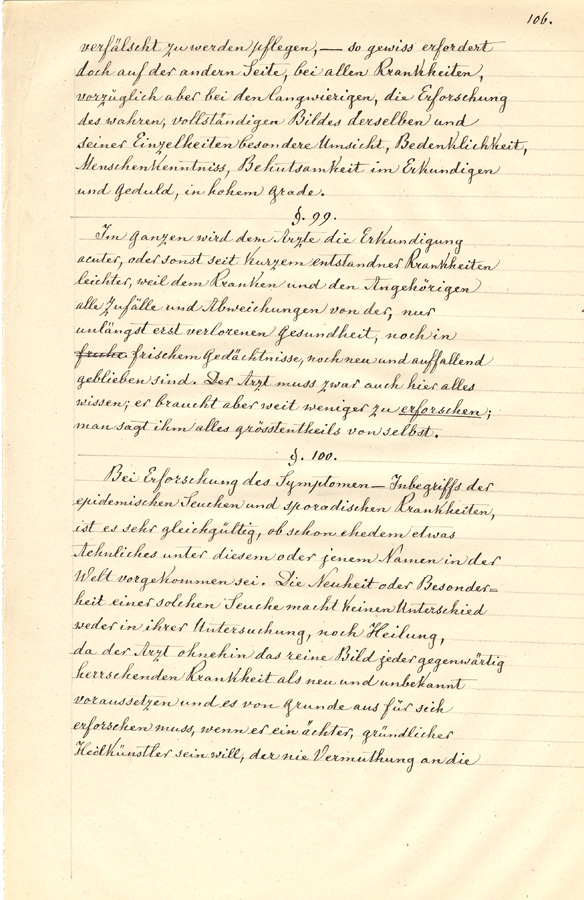 106.
verfälscht zu werden pflegen, — so gewiss erfordert
doch auf der andern Seite, bei allen Krankheiten,
vorzüglich aber bei den langwierigen, die Erforschung
des wahren, vollständigen Bildes derselben und
seiner Einzelheiten besondere Umsicht, Bedenklichkeit,
Menschenkenntniss, Behutsamkeit im Erkundigen
und Geduld, in hohem Grade.
§. 99.
Im Ganzen wird dem Arzte die Erkundigung
acuter, oder sonst seit Kurzem entstandner Krankheiten
leichter, weil dem Kranken und den Angehörigen
alle Zufälle und Abweichungen von der, nur
unlängst erst verlorenen Gesundheit, noch in
frischem Gedächtnisse, noch neu und auffallend
geblieben sind. Der Arzt muss zwar auch hier alles
wissen; er braucht aber weit weniger zu erforschen;
man sagt ihm alles grösstentheils von selbst.
§. 100.
Bei Erforschung des Symptomen — Inbegriffs der
epidemischen Seuchen und sporadischen Krankheiten,
ist es sehr gleichgültig, ob schon ehedem etwas
Aehnliches unter diesem oder jenem Namen in der
Welt vorgekommen sei. Die Neuheit oder Besonder=
heit einer solchen Seuche macht keinen Unterschied
weder in ihrer Untersuchung, noch Heilung,
da der Arzt ohnehin das reine Bild jeder gegenwärtig
herrschenden Krankheit als neu und unbekannt
voraussetzen und es von Grunde aus für sich
erforschen muss, wenn er ein ächter, gründlicher
Heilkünstler sein will, der nie Vermuthung an die